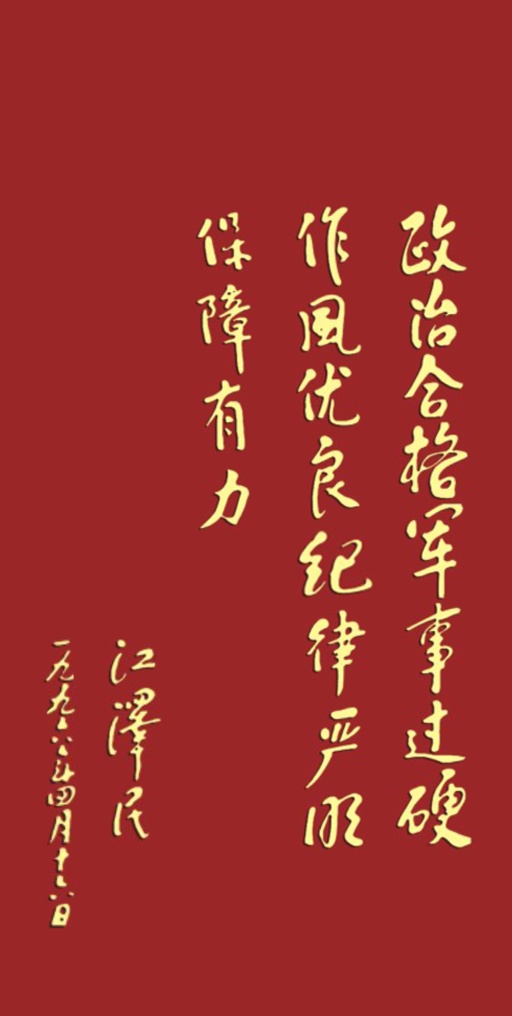 政治合格军事过硬
作风优良纪律严明
保障有力
江澤民
一九九六年四月十六日